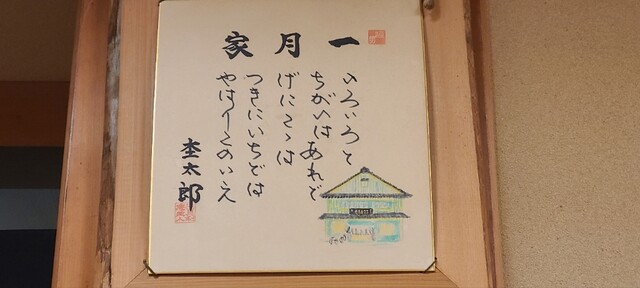 一月家
いろいろと
ちがいはあれど
げにこゝは
つきにいちどは
やはりこのいえ
杢太郎